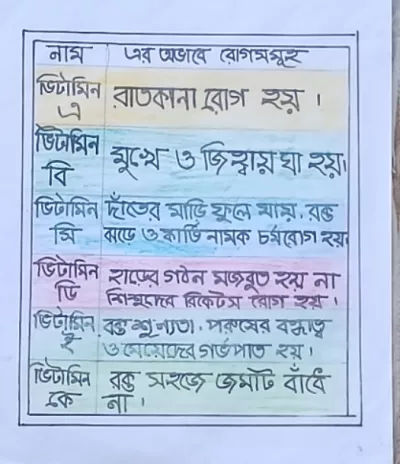 নাম এর অভাবে রোগসমূহ
ভিটামিন এ রাতকানা রোগ হয় ।
ভিটামিন বি মুখে ও জিহ্বায় ঘা হয়।
ভিটামিন দাঁতের মাড়ি ফুলে যায়, রক্ত
সি ঝড়ে ও স্কার্ভি নামক চর্মরোগ হয়
ভিটামিন হাড়ের গঠন মজবুত হয় না
ডি শিশুদের রিকেটস রোগ হয় ।
ভিটামিন রক্ত শূন্যতা, পুরুষের বন্ধ্যাত্ব
ই ও মেয়েদের গর্ভপাত হয় ।
ভিটামিন রক্ত সহজে জমাট বাঁধে
কে না ।